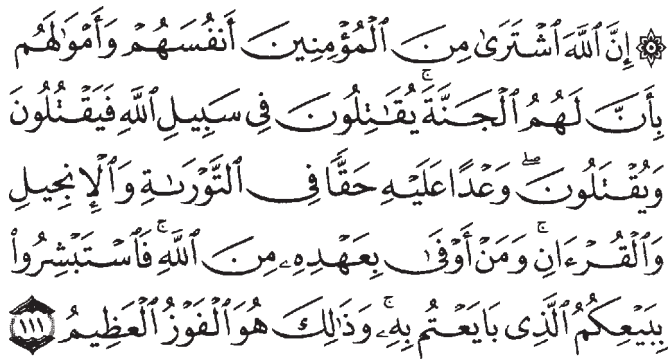 ۞ إِنَّ ٱللَّهَ ٱشْتَرَىٰ مِنَ ٱلْمُؤْمِنِينَ أَنفُسَهُمْ وَأَمْوَٰلَهُم
بِأَنَّ لَهُمُ ٱلْجَنَّةَ ۚ يُقَـٰتِلُونَ فِى سَبِيلِ ٱللَّهِ فَيَقْتُلُونَ
وَيُقْتَلُونَ ۖ وَعْدًا عَلَيْهِ حَقًّا فِى ٱلتَّوْرَىٰةِ وَٱلْإِنجِيلِ
وَٱلْقُرْءَانِ ۚ وَمَنْ أَوْفَىٰ بِعَهْدِهِۦ مِنَ ٱللَّهِ ۚ فَٱسْتَبْشِرُوا۟
بِبَيْعِكُمُ ٱلَّذِى بَايَعْتُم بِهِۦ ۚ وَذَٰلِكَ هُوَ ٱلْفَوْزُ ٱلْعَظِيمُ ١١١